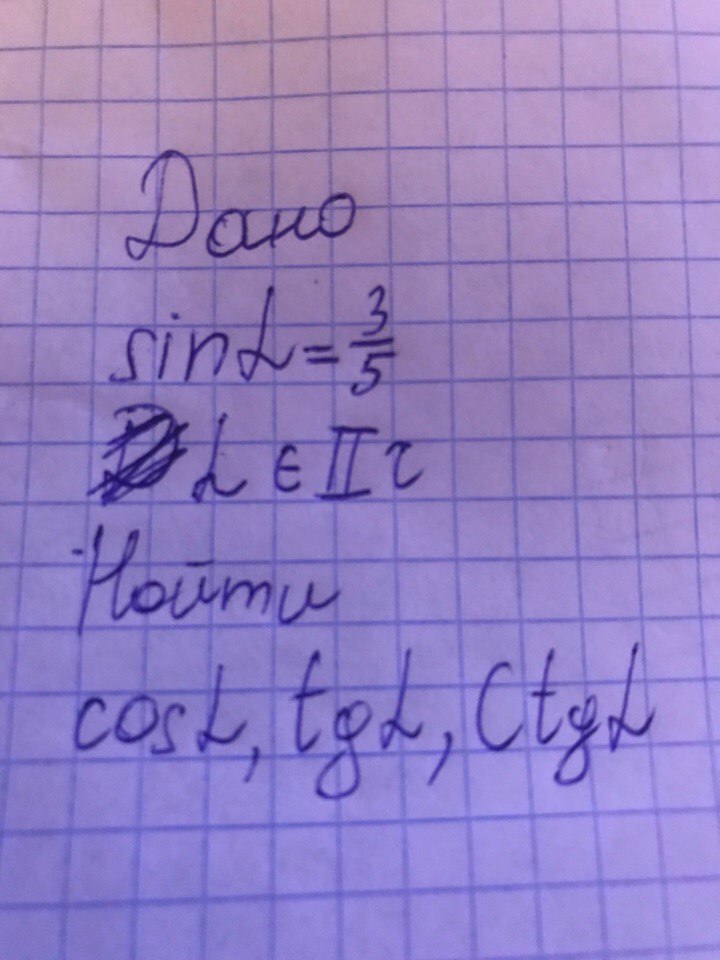 Дано
sin α = 3/5
α ∈ II ч
Найти
cos α, tg α, ctg α